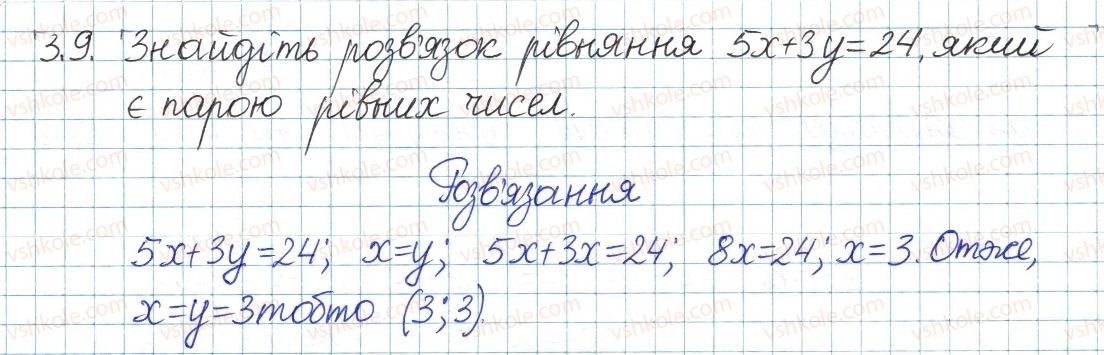 3.9. Знайдіть розв'язок рівняння 5x+3y=24, який
є парою рівних чисел.
Розв'язання
5x+3y=24; x=y; 5x+3x=24; 8x=24; x=3. Отже,
x=y=3 тобто (3;3).